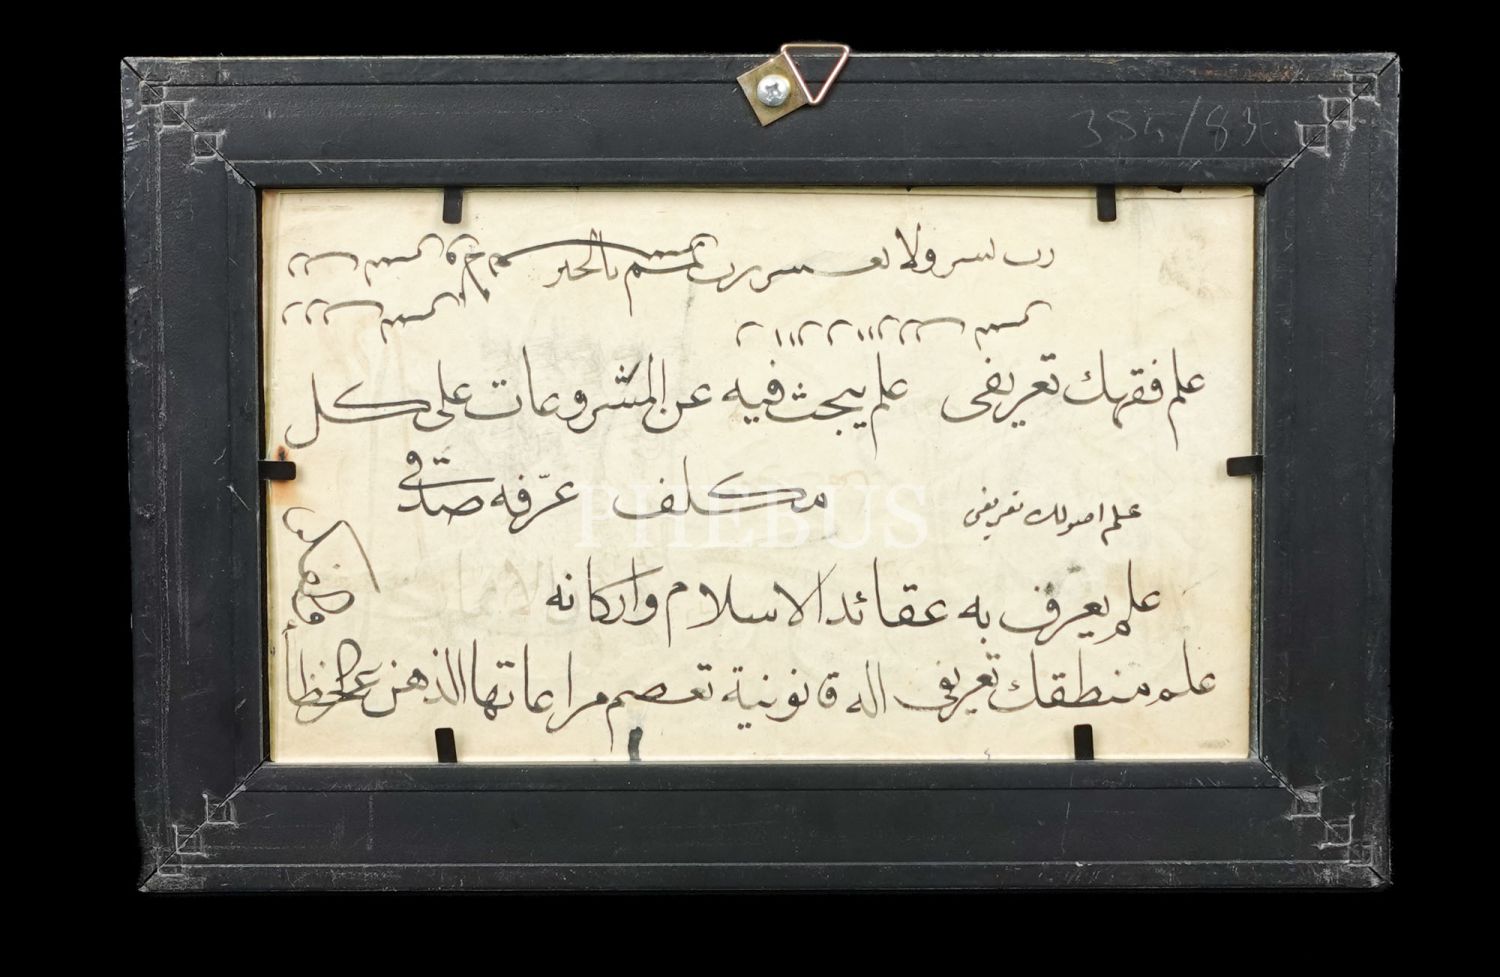 385/83
رب يسر ولا تعسر رب تمم بالخير
علم فقهك تعريفى علم يبحث فيه عن المشروعات على كل
مكلف عرّفه صدقى
علم اصولك تعريفى
علم يعرف به عقائد الاسلام واركانه
علم منطقك تعريفى اله قانونية تعصم مراعاتها الذهن عن الخطأ
PHEBUS